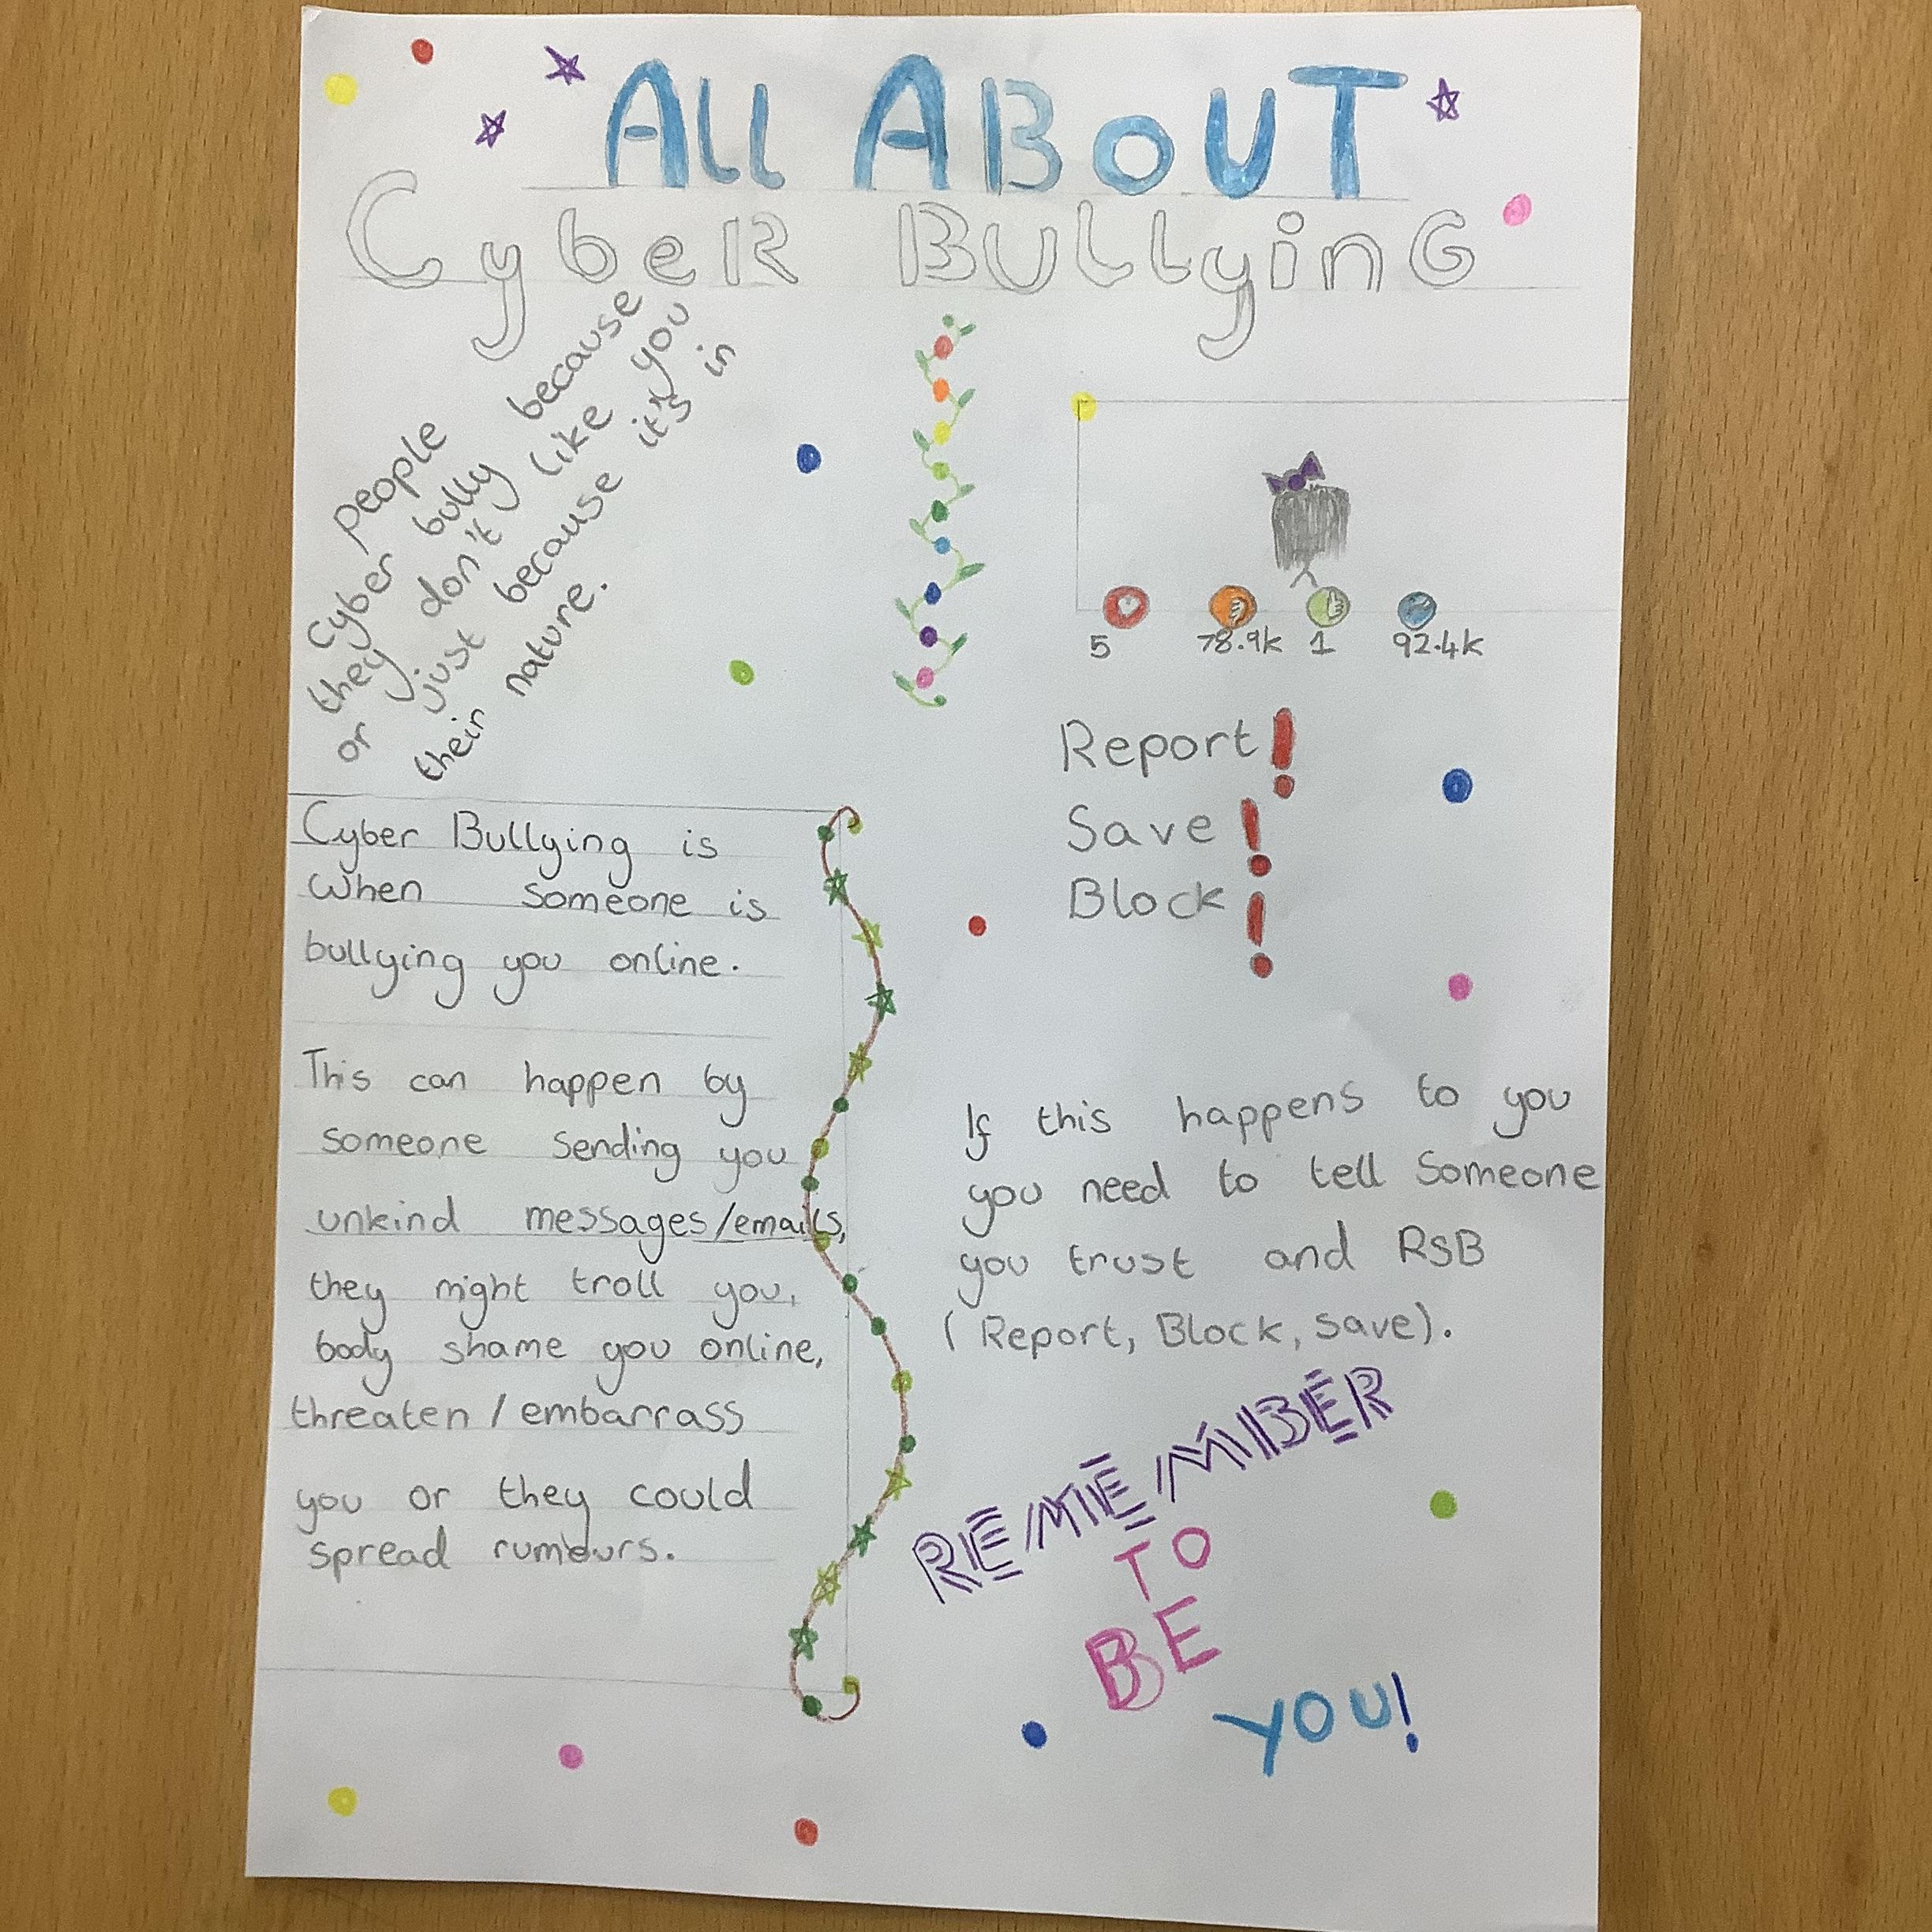 All ABOUT
CybeR BULLyinG
people
Cyber bully because
they don't like you
or just because it's in
their nature.
5 78.9k 1 92.4k
Report!
Save!
Block!
Cyber Bullying is
When someone is
bullying you online.
This can happen by
someone sending you
unkind messages/emails,
they might troll you,
body shame you online,
threaten / embarrass
you or they could
spread rumours.
If this happens to you
you need to tell Someone
you trust and RSB
(Report, Block, save).
REMEMBER
TO
BE
YOU!